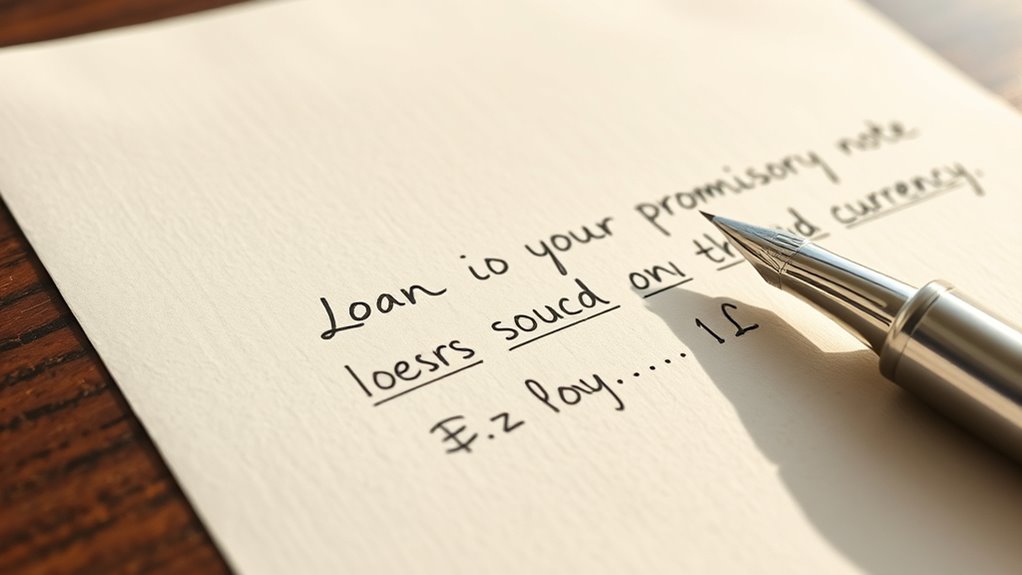 Loan io your promisory note
loesrs soucd on currency.
E.z Poy..... 1£